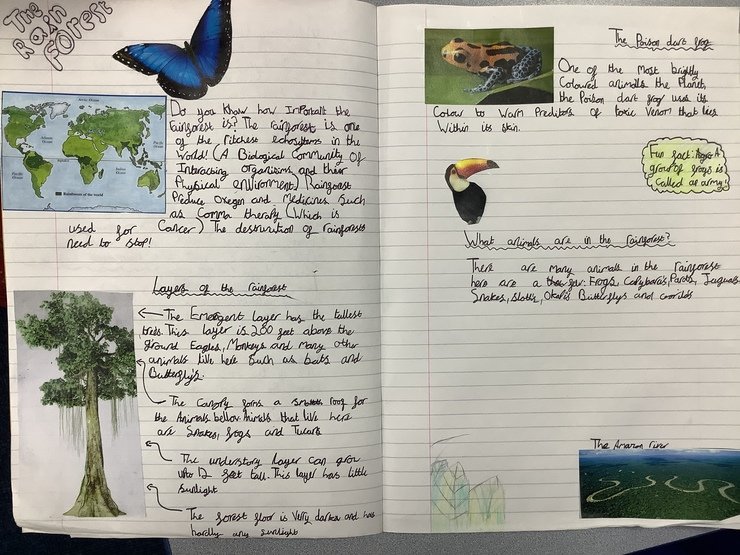 The
Rain
Forest
Do you know how Importait the
rainforest is? The rainforest is one
of the Ritchest echosystems in the
World! (A Biological Community Of
Interacting organisims and their
Physical environment) Rainforest
Produce Oxegen and Medicines Such
as Comma therapy (Which is
used for Cancer) The destrunction of rainforests
need to Stop!
Arctic Ocean
Atlantic Ocean
Pacific Ocean
Equator
Indian Ocean
Pacific Ocean
Rainforests of the world
Layers of the rainforest
The Emergent layer has the tallest
trees. This layer is 200 feet above the
ground Eagles, Monkeys and many other
animals live here Such as bats and
Butterfly's.
The Canopy forms a roof for
the Animals bellow. Animals that live here
are Snakes, frogs and Tucans
The understory Layer can grow
upto 12 feet tall. This layer has little
Sunlight
The forest floor is Very darker and has
hardly any Sunlight
The Poison dart frog
One of the Most brightly
Coloured animals the Planet,
the Poison dart frog uses its
Colour to Warn Preditors Of toxic Venom that lies
Within its Skin.
Fun fact: A
group of frogs is
called an army!
What animals are in the rainforest?
There are Many animals in the rainforest
here are a few: Frogs, Capybara's, Parots, Jaguals
Snakes, Sloths, Okapis Butterflys and
The Amazon river